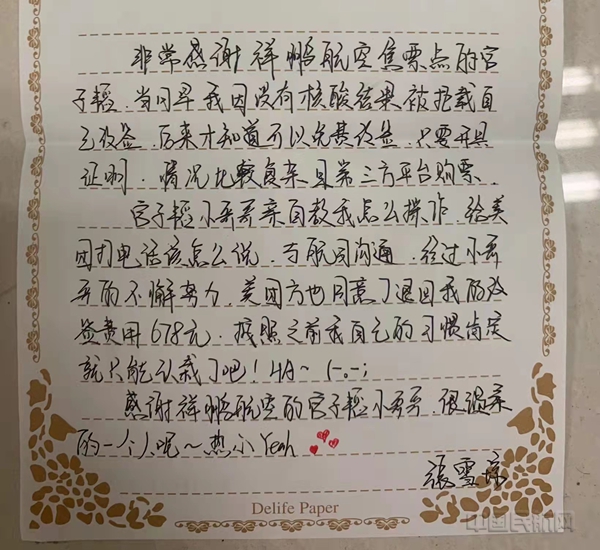 非常感谢祥鹏航空售票点的宫
子韬.当日早我因没有核酸结果被拦截自
己改签.后来才知道可以免费改签.只要开具
证明.情况比较复杂且第三方平台购票.
宫子韬小哥哥亲自教我怎么操作.给美
团打电话该怎么说.与航司沟通.经过小哥
哥的不懈努力.美团方也同意了退回我的改
签费用678元.按照之前我自己的习惯肯定
就只能认栽了吧!HA~(-.-;
感谢祥鹏航空的宫子韬小哥哥.很温柔
的一个人呢~热心Yeah
張雪琼
Delife Paper
中国民航网